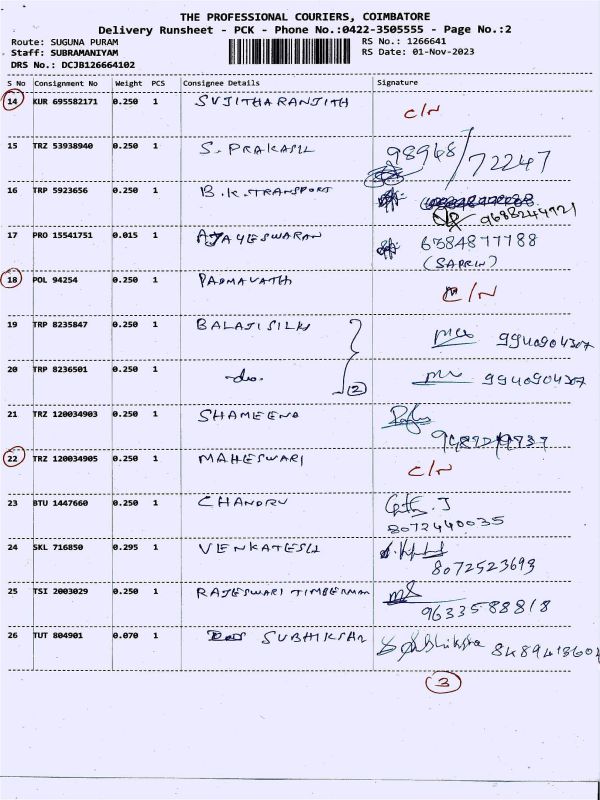 THE PROFESSIONAL COURIERS, COIMBATORE
Delivery Runsheet - PCK - Phone No.:0422-3505555 - Page No.:2
Route: SUGUNA PURAM RS No.: 1266641
Staff: SUBRAMANIYAM RS Date: 01-Nov-2023
DRS No.: DCJB126664102
S No Consignment No Weight PCS Consignee Details Signature
14 KUR 695582171 0.250 1 SUJITHARANJITH C/N
15 TRZ 53938940 0.250 1 S. PRAKASH 98948/72247
16 TRP 5923656 0.250 1 B.K.TRANSPORT
9688244921
17 PRO 15541751 0.015 1 AJAYESWARAN 6384877188
(SABRIN)
18 POL 94254 0.250 1 PADMAVATHI C/N
19 TRP 8235847 0.250 1 BALAJI SILKS 9940904307
20 TRP 8236501 0.250 1 -do. 2 9940904307
21 TRZ 120034903 0.250 1 SHAMEENA
22 TRZ 120034905 0.250 1 MAHESWARI C/N
23 BTU 1447660 0.250 1 CHANDRU
8072440035
24 SKL 716850 0.295 1 VENKATESH
8072523693
25 TSI 2003029 0.250 1 RAJESWARI TIMBERMAN
9633588818
26 TUT 804901 0.070 1 SUBHIKSHA
3